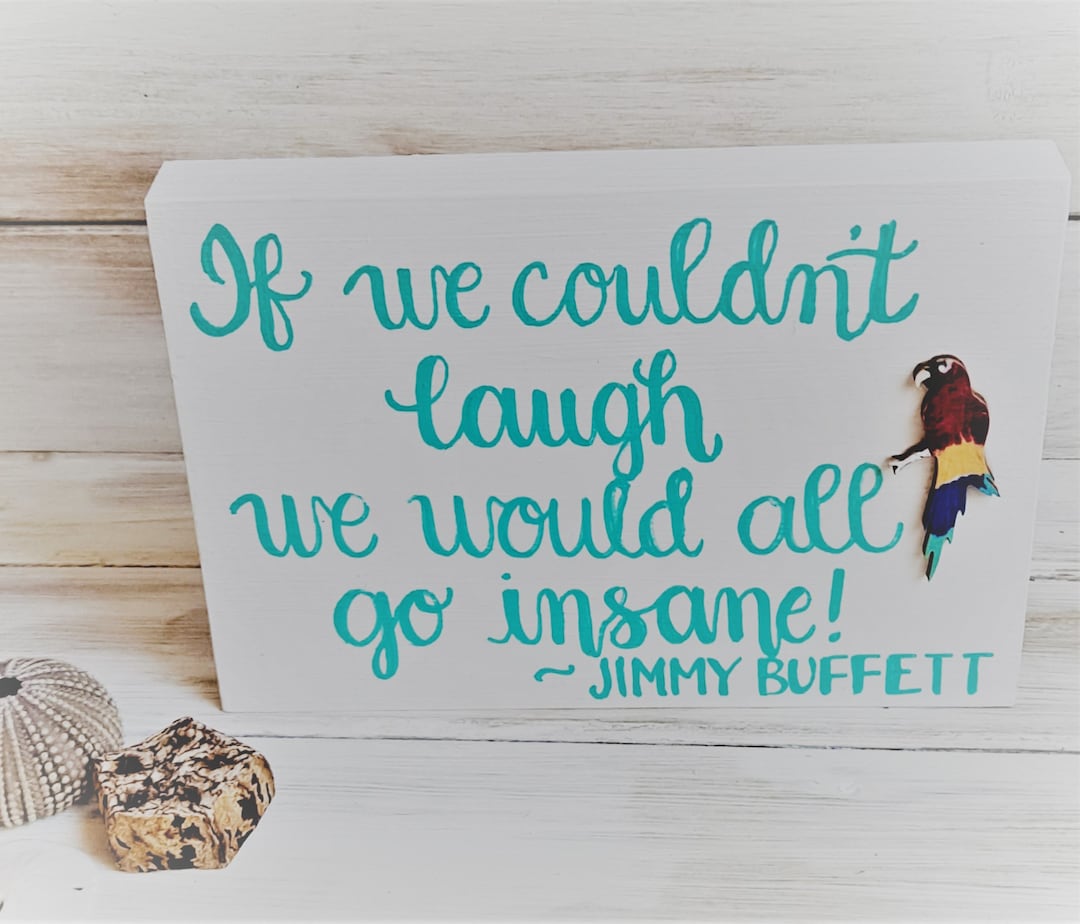 If we couldn't
laugh
we would all
go insane!
~ JIMMY BUFFETT